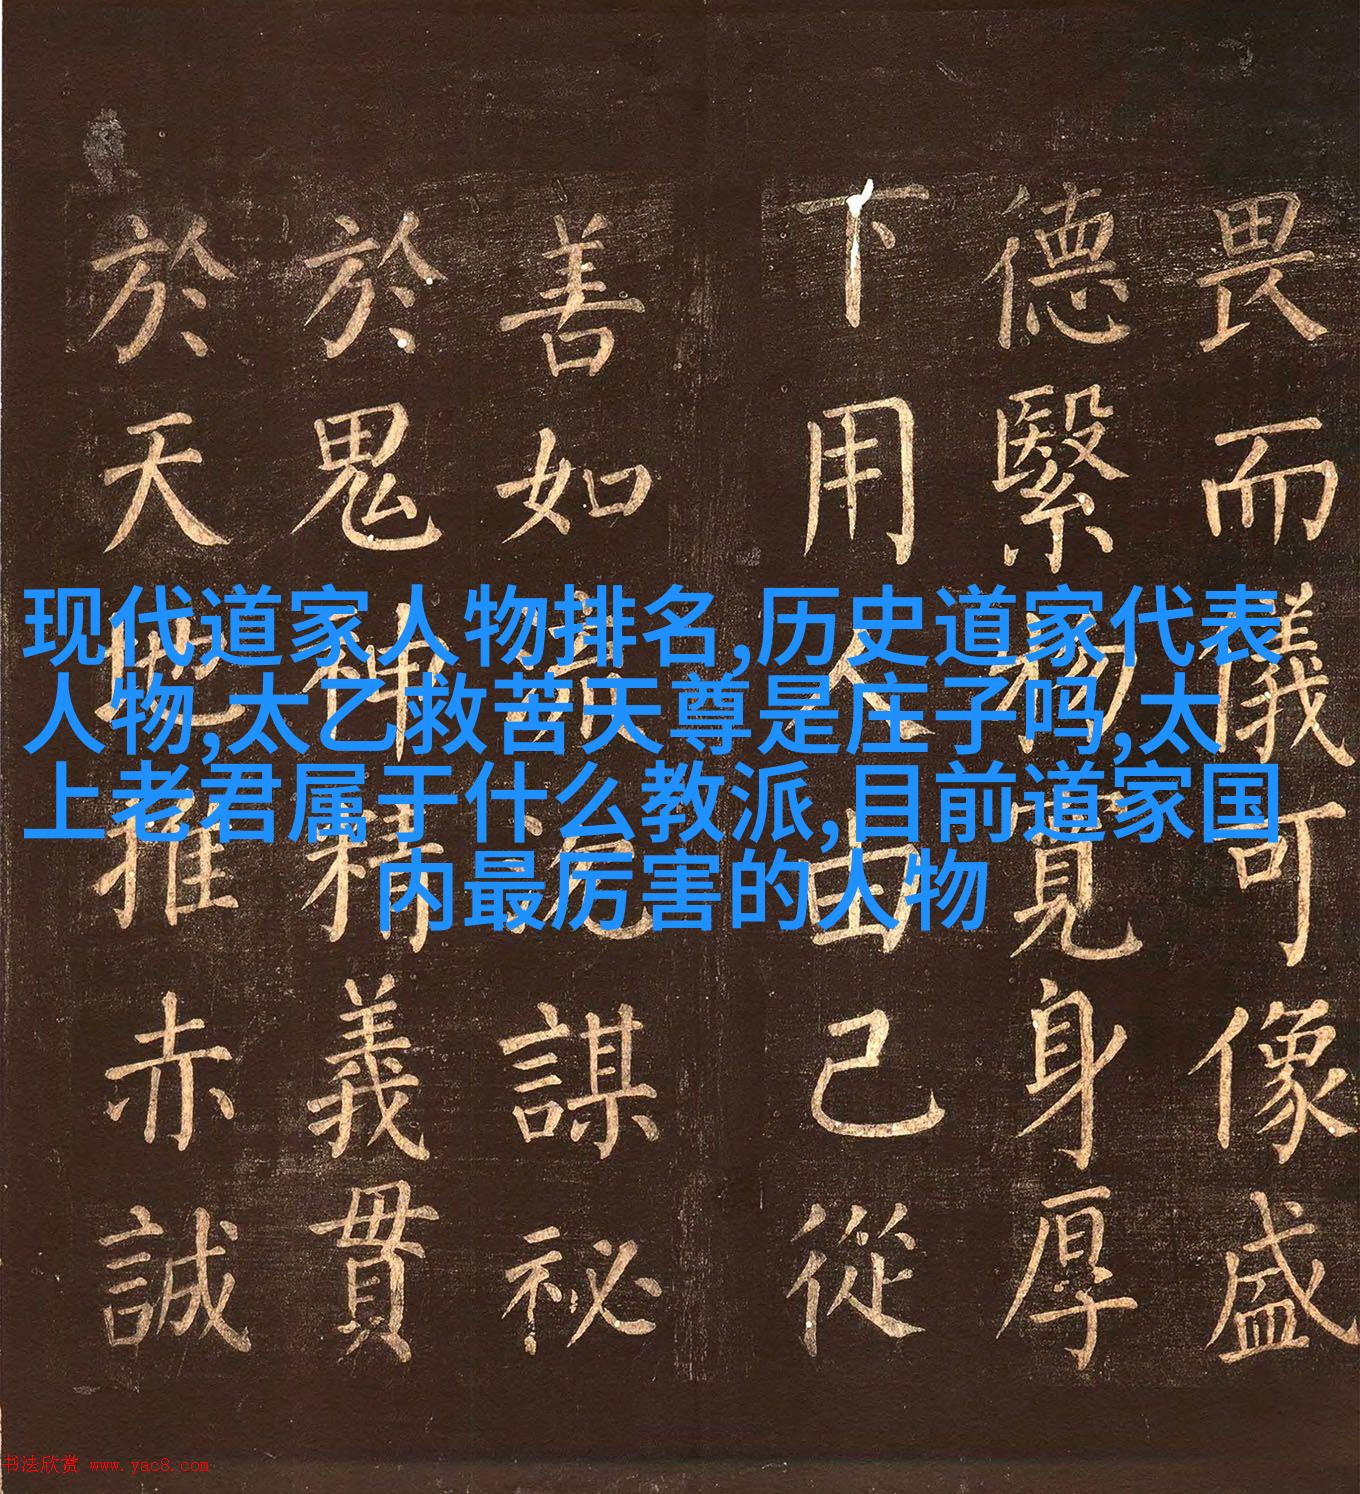 现代道家人物排名,历史道家代表
人物,太乙救苦天尊是庄子吗,太
上老君属于什么教派,目前道家国
内最厉害的人物
畏而儀可像盛
德繄物寬身厚
下用人由己從
善如謀祕
於鬼神精義貫
於天地推赤誠
书法欣赏 www.yac8.com